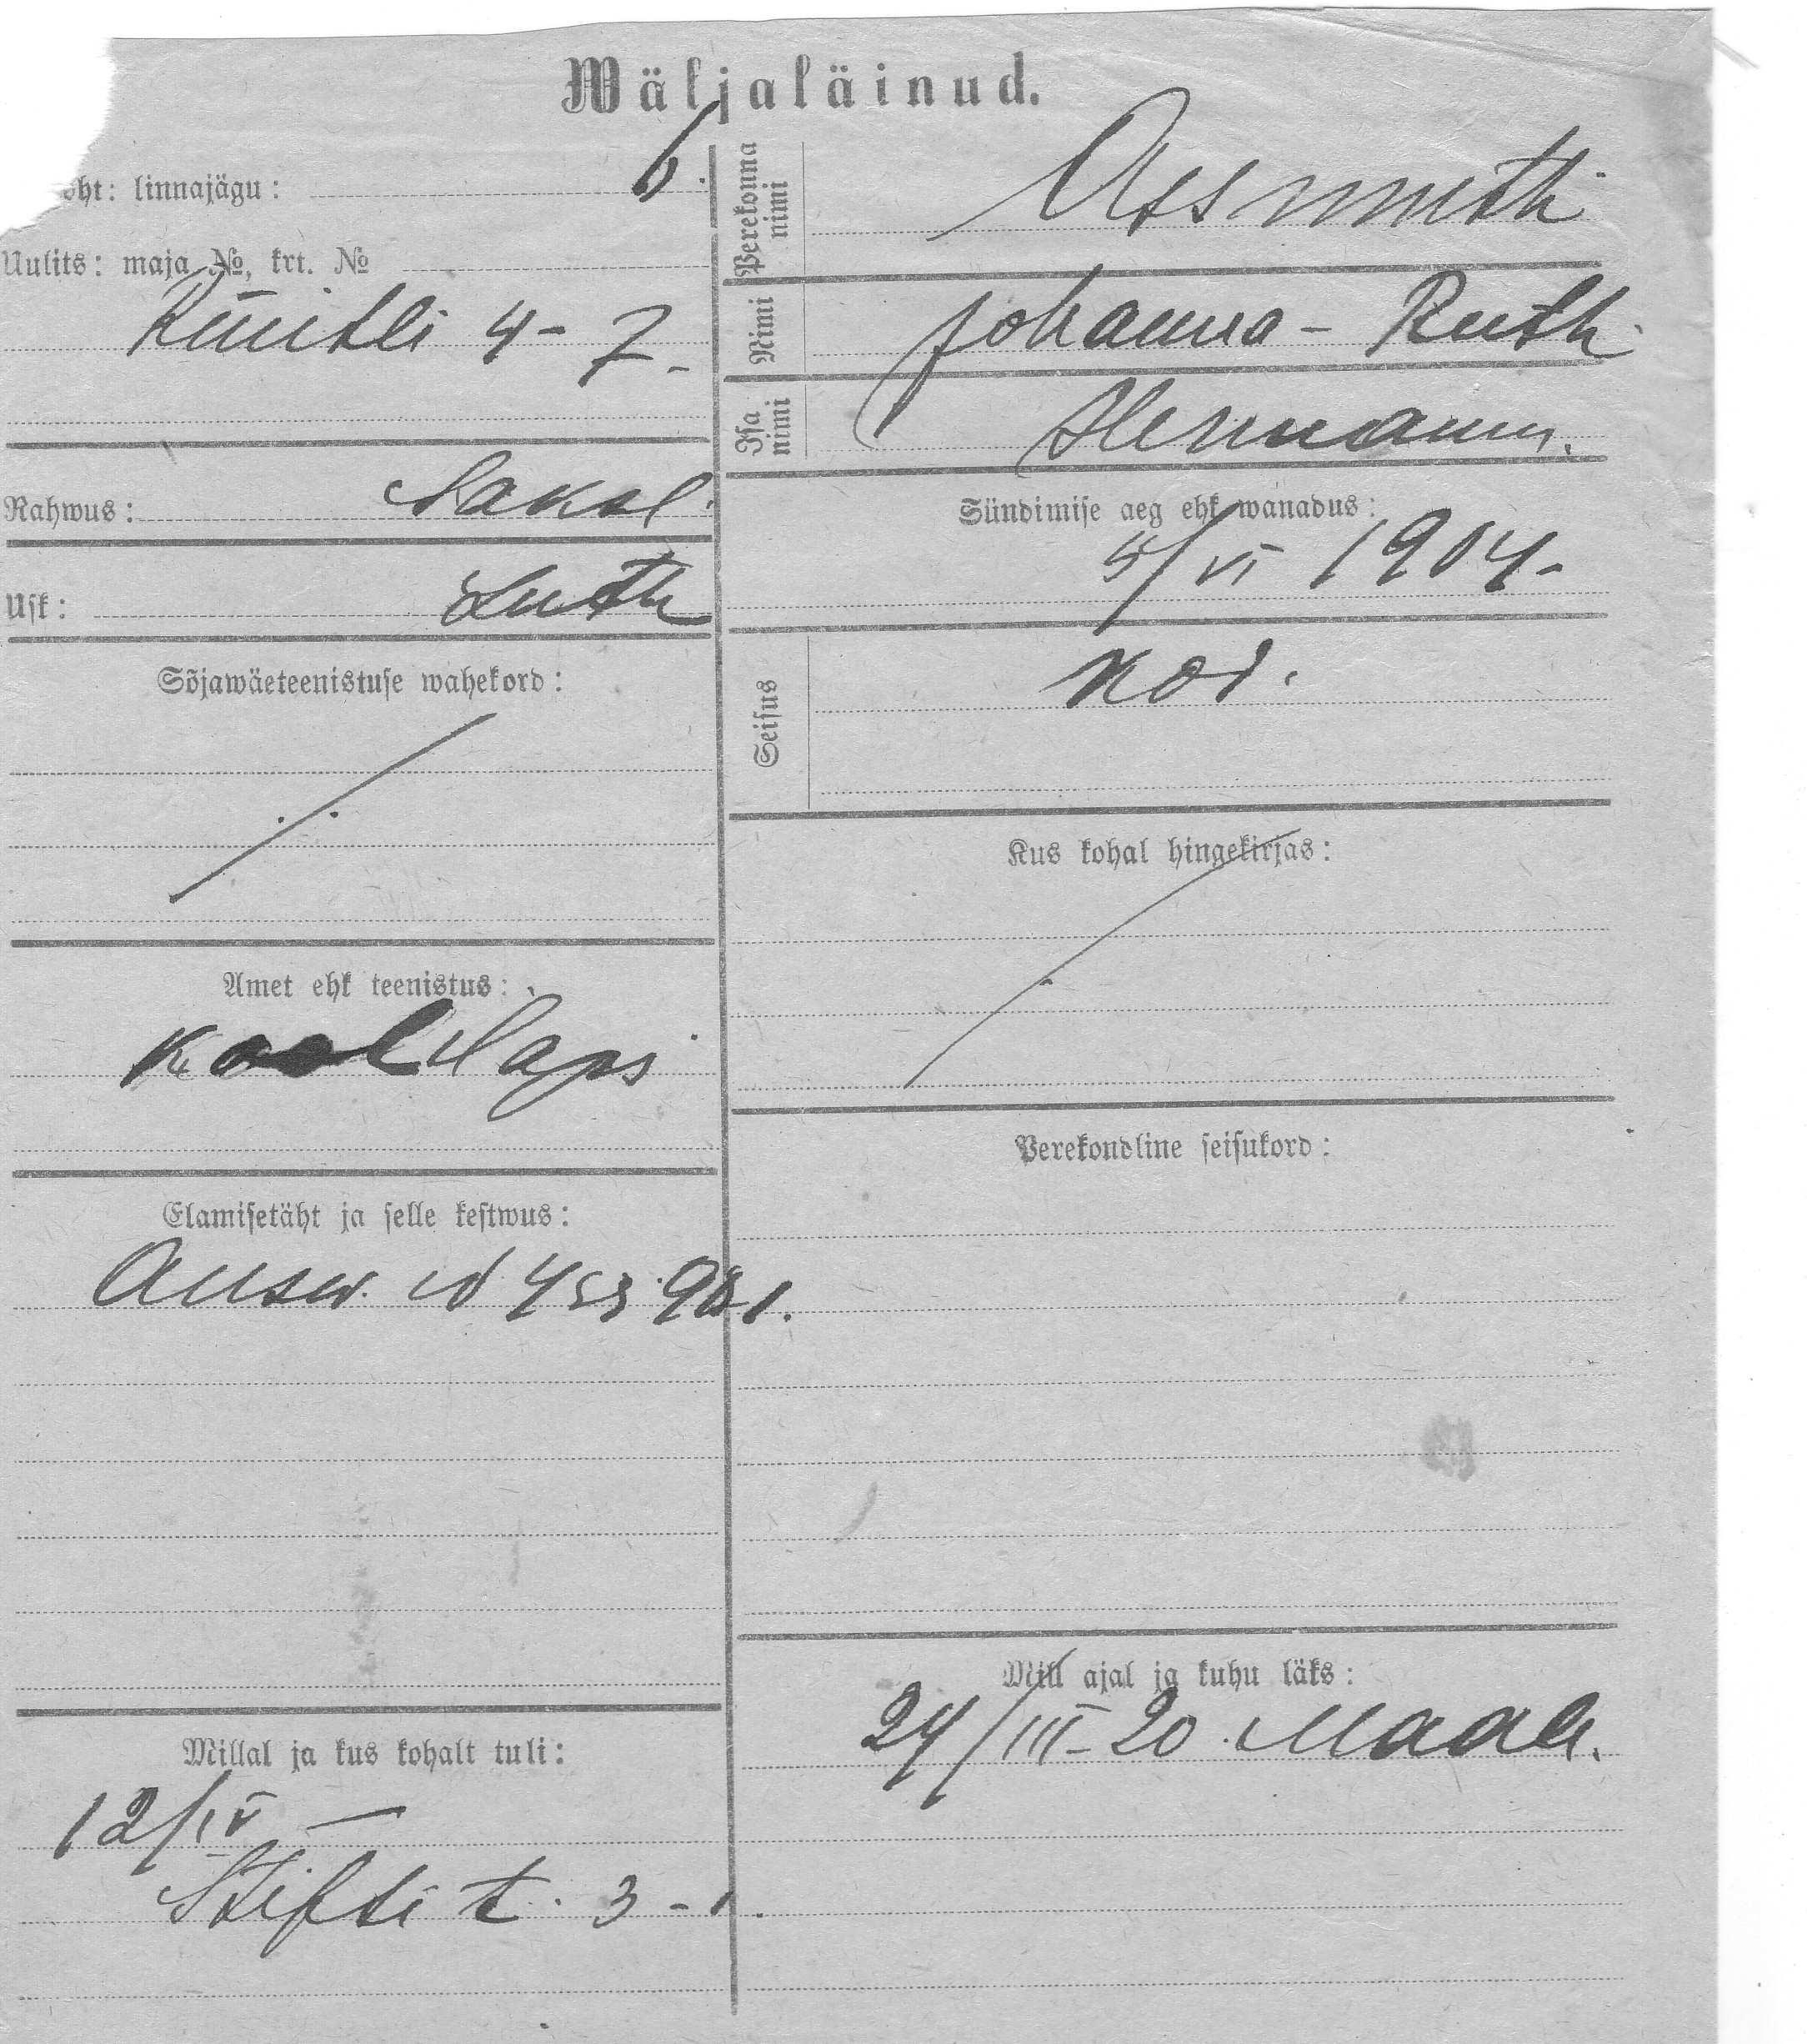 Wäljaläinud.
oht: linnajägu: 6.
Uulits: maja №, krt. №
Küütli 4-7-
Rahwus: Saksl.
Usk: Luth
Sõjawäeteenistuse wahekord:
Amet ehk teenistus:
koolilaps
Elamisetäht ja selle kestwus:
Ausw. N 453981.
Millal ja kus kohalt tuli:
12/IV —
Stifti t. 3-1.
Perekonna nimi Assmuth
Nimi Johanna-Ruth
Isa nimi Hermann.
Sündimise aeg ehk wanadus:
5/VI 1904-
Seisus kod.
Kus kohal hingekirjas:
Perekondline seisukord:
Mill ajal ja kuhu läks:
24/III-20. Maale.